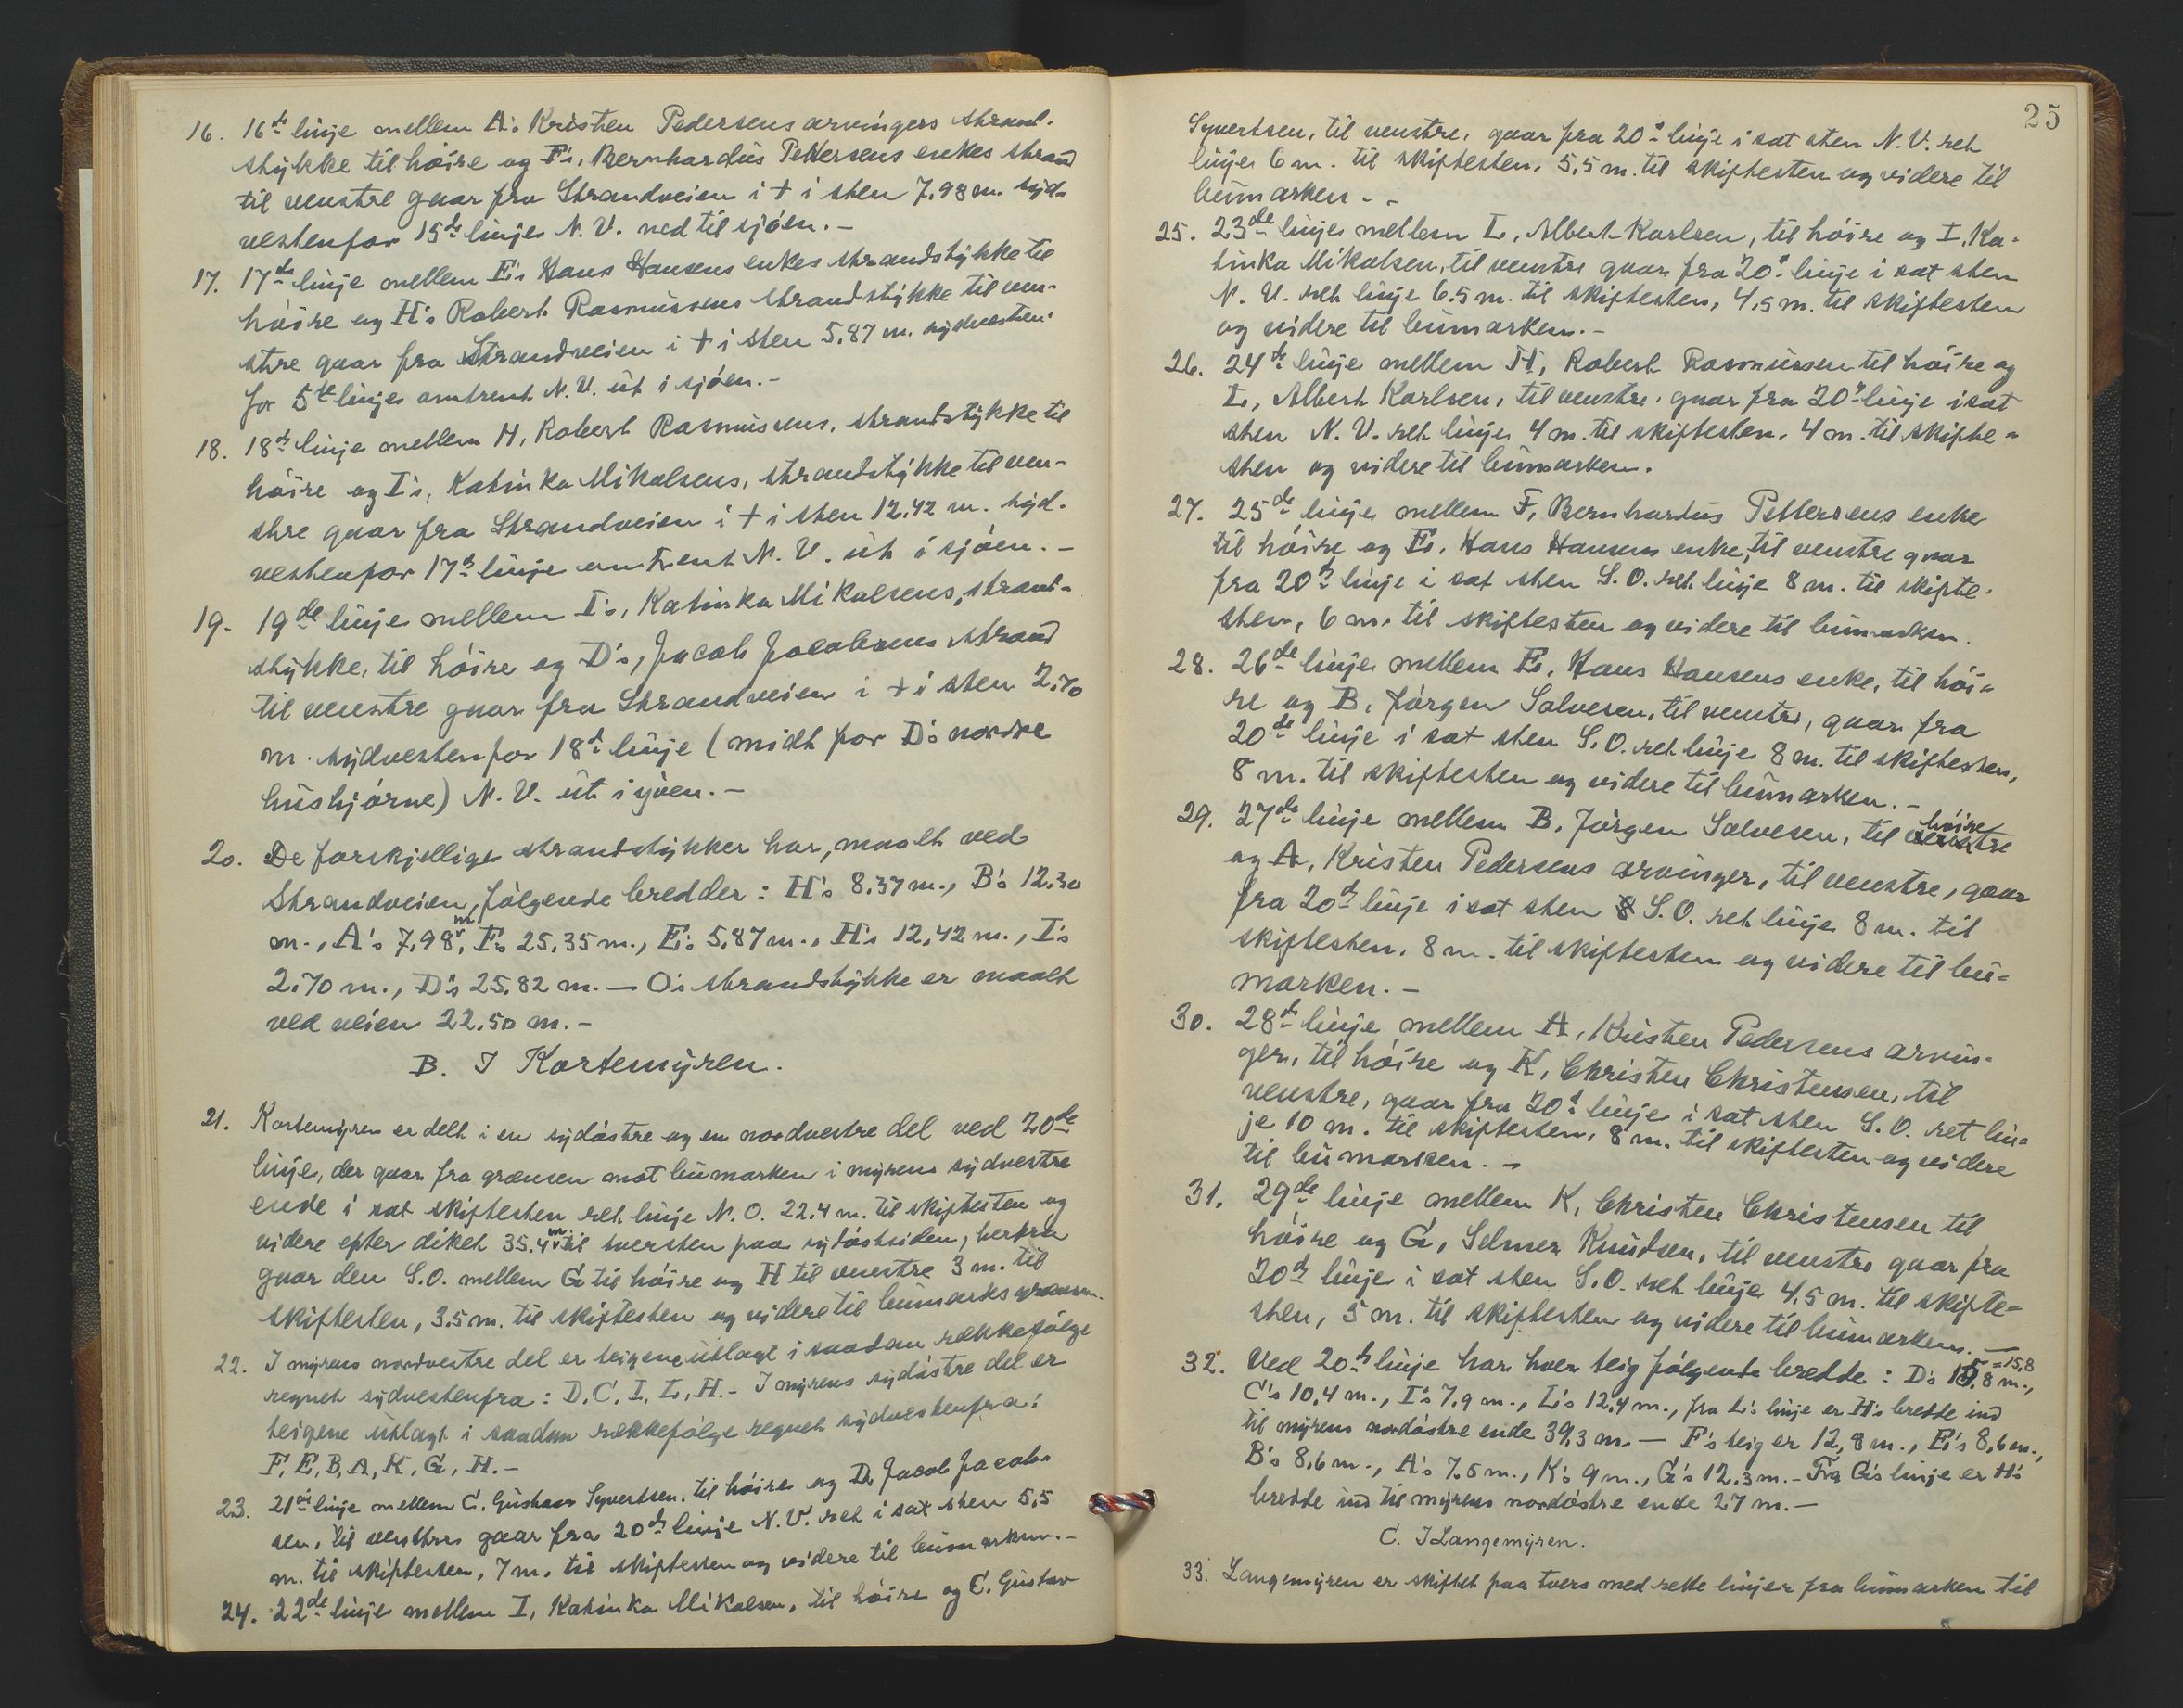 16. 16de linje mellem A's Kristen Pedersens arvingers strand-
stykke til höire og F's, Bernhardus Pettersens enkes strand
til venstre gaar fra Strandveien i + i sten 7,98 m. syd-
vestenfor 15de linje N. V. ned til sjöen. -
17. 17de linje mellem E's Hans Hansens enkes strandstykke til
höire og H's Robert Rasmussens strandstykke til ven-
stre gaar fra Strandveien i + i sten 5,87 m. sydvesten-
for 5te linje omtrent N. V. ut i sjöen. -
18. 18de linje mellem H, Robert Rasmussens, strandstykke til
höire og I's, Katinka Mikalsens, strandstykke til ven-
stre gaar fra Strandveien i + i sten 12,42 m. syd-
vestenfor 17de linje omtrent N. V. ut i sjöen. -
19. 19de linje mellem I's, Katinka Mikalsens, strand-
stykke, til höire og D's, Jacob Jacobsens strand
til venstre gaar fra Strandveien i + i sten 2,70
m. sydvestenfor 18de linje (midt for D's nordre
hushjörne) N. V. ut i sjöen. -
20. De forskjellige strandstykker har, maalt ved
Strandveien, fölgende bredder: H's 8,37 m., B's 12,30
m., A's 7,98 m, F's 25,35 m., E's 5,87 m., H's 12,42 m., I's
2,70 m., D's 25,82 m. - O's strandstykke er maalt
ved veien 22,50 m. -
B. I Kortemyren.
21. Kortemyren er delt i en sydöstre og en nordvestre del ved 20de
linje, der gaar fra grænsen mot bumarken i myrens sydvestre
ende i sat skiftesten ret linje N. O. 22,4 m. til skiftesten og
videre efter diket 35,4 m. til tversten paa sydöstsiden, herfra
gaar den S.O. mellem G til höire og H til venstre 3 m. til
skiftesten, 3,5 m. til skiftesten og videre til bumarksgrænsen.
22. I myrens nordvestre del er teigene utlagt i saadan rækkefölge
regnet sydvestenfra: D, C, I, L, H. - I myrens sydöstre del er
teigene utlagt i saadan rækkefölge regnet sydvestenfra:
F, E, B, A, K, G, H. -
23. 21de linje mellem C. Gustav Syvertsen, til höire og D, Jacob Jacob-
sen, til venstre gaar fra 20de linje N. V. ret i sat sten 5,5
m. til skiftesten, 7 m. til skiftesten og videre til bumarken. -
24. 22de linje mellem I, Katinka Mikalsen, til höire og C. Gustav
25
Syvertsen, til venstre, gaar fra 20de linje i sat sten N. V. ret
linje 6 m. til skiftesten, 5,5 m. til skiftesten og videre til
bumarken. -
25. 23de linje mellem L, Albert Karlsen, til höire og I, Ka-
tinka Mikalsen, til venstre gaar fra 20de linje i sat sten
N. V. ret linje 6,5 m. til skiftesten, 4,5 m. til skiftesten
og videre til bumarken. -
26. 24de linje mellem H, Robert Rasmussen til höire og
L, Albert Karlsen, til venstre, gaar fra 20de linje i sat
sten N. V. ret linje 4 m. til skiftesten, 4 m. til skifte-
sten og videre til bumarken.
27. 25de linje mellem F, Bernhardus Pettersens enke
til höire og E, Hans Hansens enke, til venstre gaar
fra 20de linje i sat sten S. O. ret linje 8 m. til skifte-
sten, 6 m. til skiftesten og videre til bumarken.
28. 26de linje mellem E, Hans Hansens enke, til höi-
re og B, Jörgen Salvesen, til venstre, gaar fra
20de linje i sat sten S. O. ret linje 8 m. til skiftesten,
8 m. til skiftesten og videre til bumarken. -
29. 27de linje mellem B, Jörgen Salvesen, til venstre höire
og A, Kristen Pedersens arvinger, til venstre, gaar
fra 20de linje i sat sten S. O. ret linje 8 m. til
skiftesten, 8 m. til skiftesten og videre til bu-
marken. -
30. 28de linje mellem A, Kristen Pedersens arvin-
ger, til höire og K, Christen Christensen, til
venstre, gaar fra 20de linje i sat sten S. O. ret lin-
je 10 m. til skiftesten, 8 m. til skiftesten og videre
til bumarken. -
31. 29de linje mellem K, Christen Christensen til
höire og G, Selmer Knudsen, til venstre gaar fra
20de linje i sat sten S. O. ret linje 4,5 m. til skifte-
sten, 5 m. til skiftesten og videre til bumarken. -
32. Ved 20de linje har hver teig fölgende bredde: D's 15,8 m., = 15,8
C's 10,4 m., I's 7,9 m., L's 12,4 m., fra L's linje er H's bredde ind
til myrens nordöstre ende 39,3 m. - F's teig er 12,8 m., E's 8,6 m.,
B's 8,6 m., A's 7,5 m., K's 9 m., G's 12,3 m. - Fra G's linje er H's
bredde ind til myrens nordöstre ende 27 m. -
C. I Langemyren.
33. Langemyren er skiftet paa tvers med rette linjer fra bumarken til